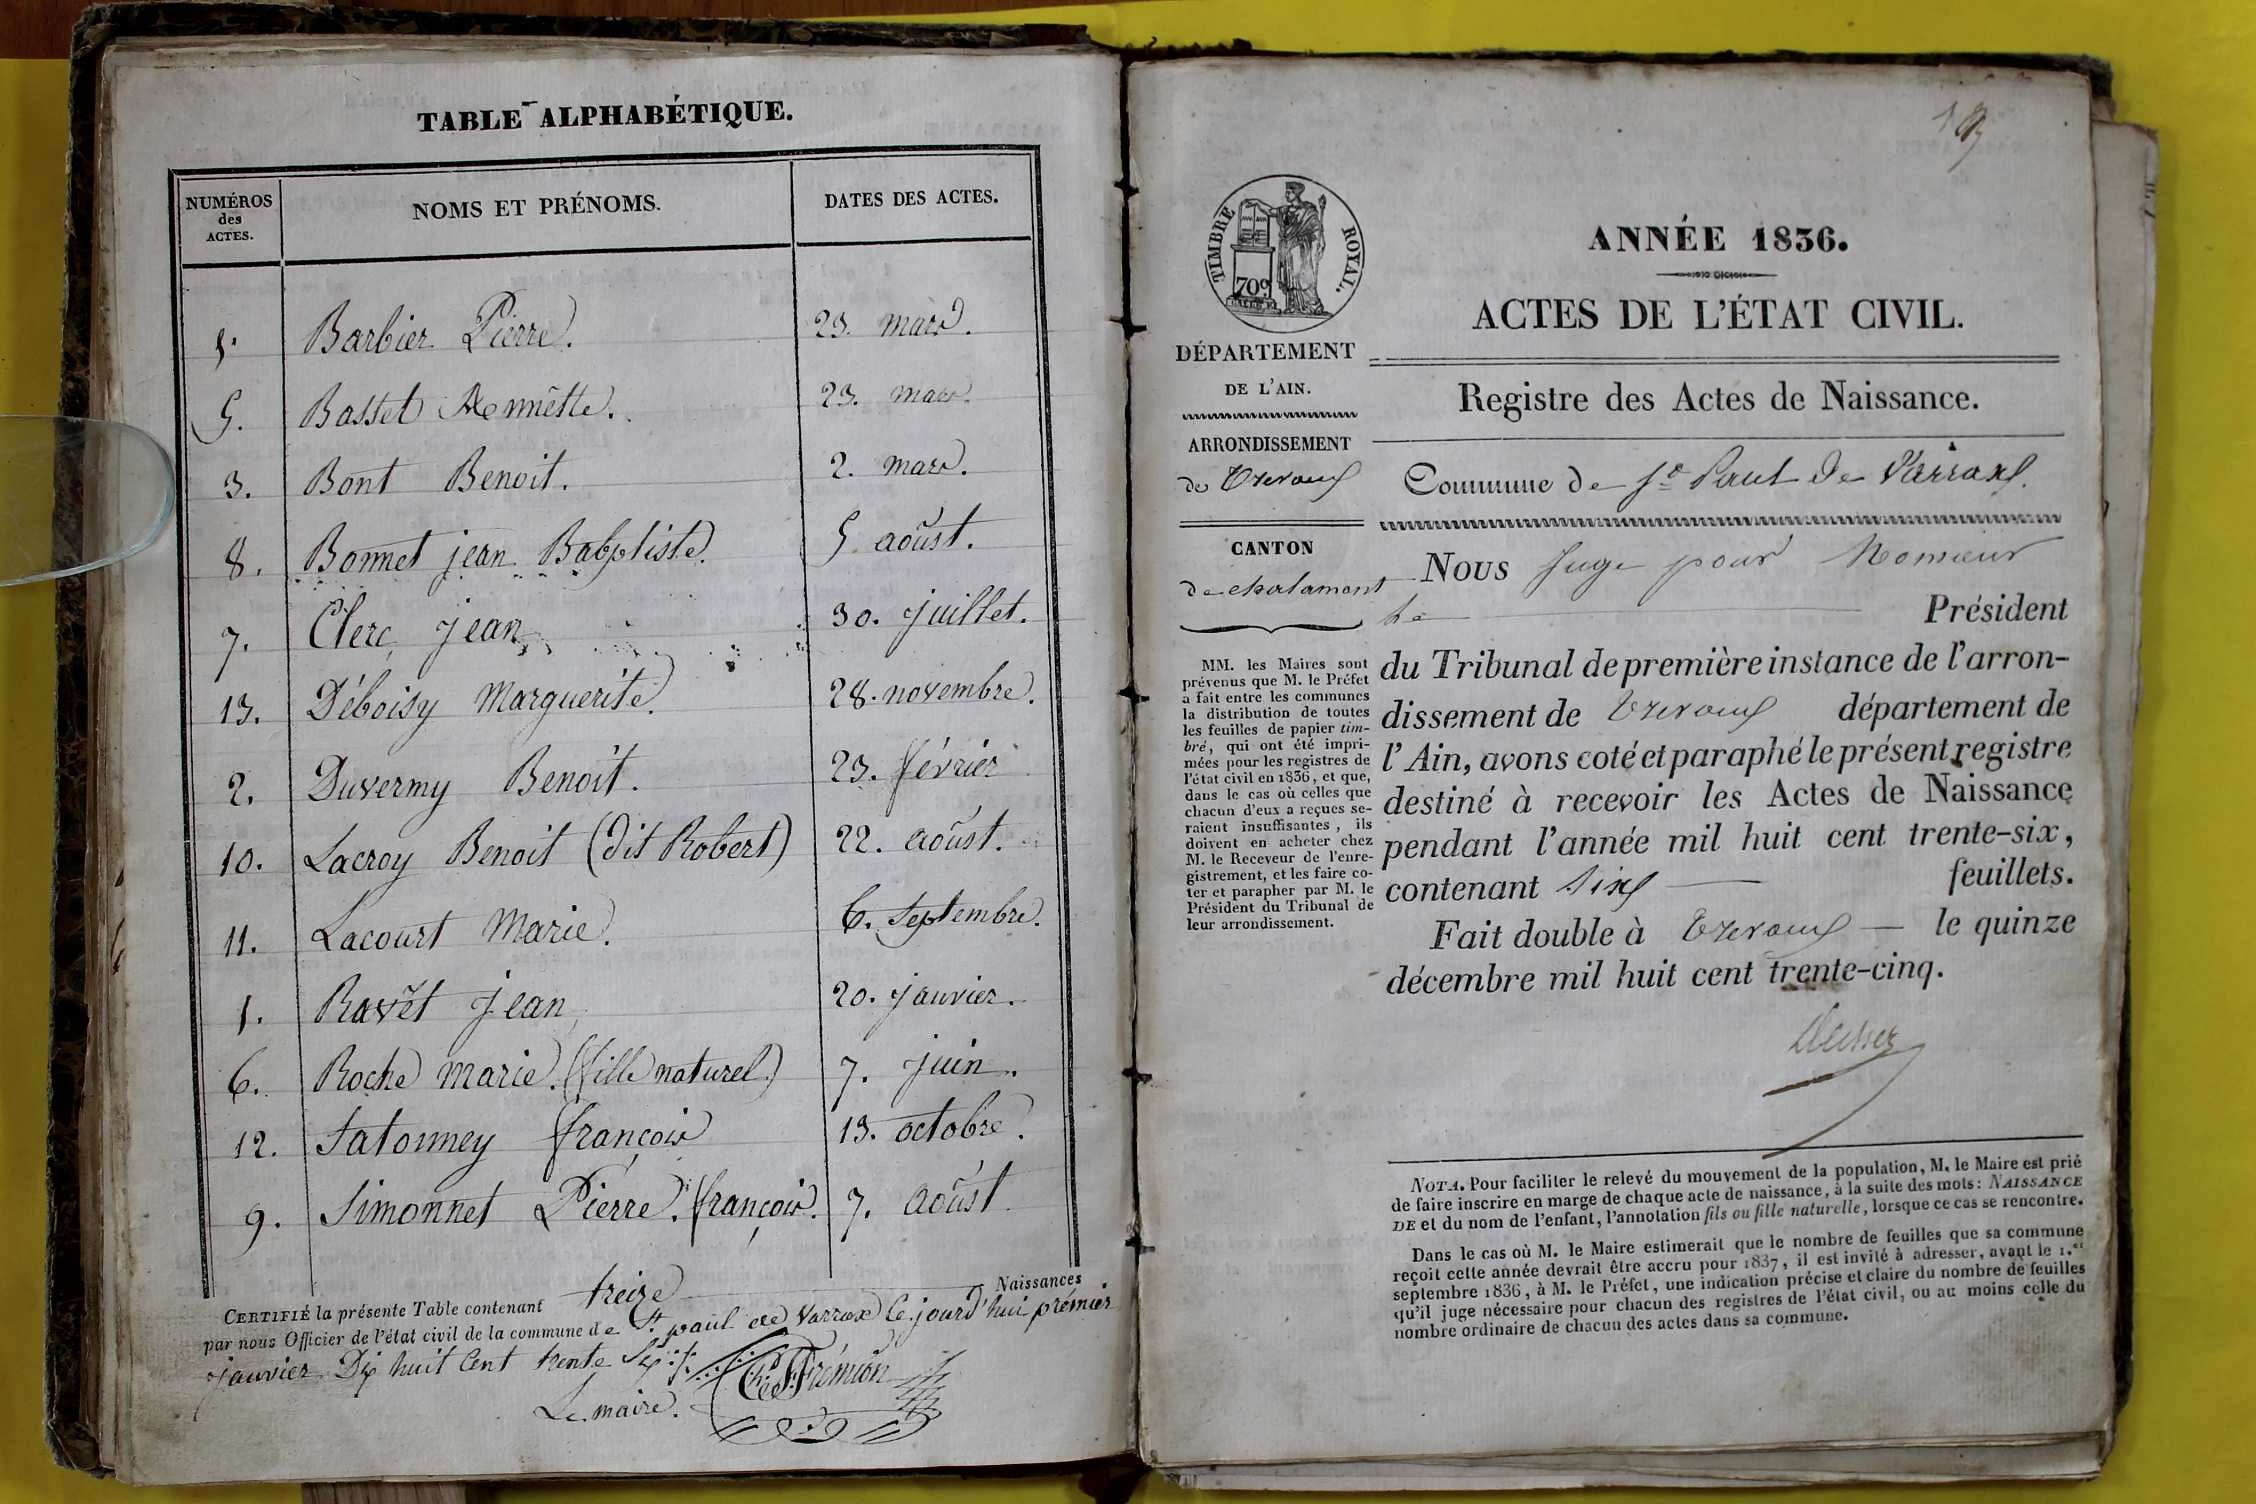 TABLE ALPHABÉTIQUE.
NUMÉROS des ACTES. NOMS ET PRÉNOMS. DATES DES ACTES.
Barbier Pierre. 23. mars.
5. Basset Mennêtte. 23. mars.
3. Bont Benoit. 2. mars.
8. Bonnet jean Babptiste. 5 aoûst.
7. Clerc, jean 30. juillet.
13. Déboisy Marguerite. 28. novembre.
2. Duvermy Benoit. 23. février
10. Lacroy Benoit (dit Robert) 22. aoûst.
11. Lacourt Marie. 6. Septembre.
1. Ravet jean 20. janvier.
6. Roche marie. (fille naturel.) 7. juin.
12. Satonney françois 13. octobre.
9. Simonnet Pierre. françois. 7. aoûst
CERTIFIÉ la présente Table contenant treize Naissances
par nous Officier de l'état civil de la commune de St. paul de varrax Ce jourd'hui prémier
janvier Dix huit Cent trente Six
Le maire. Frémion
ANNÉE 1836.
ACTES DE L'ÉTAT CIVIL.
TIMBRE ROYAL.
70c
DÉPARTEMENT
DE L'AIN.
ARRONDISSEMENT
de Trevoux
CANTON
de chalamont
MM. les Maires sont
prévenus que M. le Préfet
a fait entre les communes
la distribution de toutes
les feuilles de papier tim-
bré, qui ont été impri-
mées pour les registres de
l'état civil en 1836, et que,
dans le cas où celles que
chacun d'eux a reçues se-
raient insuffisantes, ils
doivent en acheter chez
M. le Receveur de l'enre-
gistrement, et les faire co-
ter et parapher par M. le
Président du Tribunal de
leur arrondissement.
Registre des Actes de Naissance.
Commune de St. Paul de Varrax.
Nous Juge pour Monsieur
le Président
du Tribunal de première instance de l'arron-
dissement de Trevoux département de
l'Ain, avons coté et paraphé le présent registre
destiné à recevoir les Actes de Naissance
pendant l'année mil huit cent trente-six,
contenant Six feuillets.
Fait double à Trevoux le quinze
décembre mil huit cent trente-cinq.
NOTA. Pour faciliter le relevé du mouvement de la population, M. le Maire est prié
de faire inscrire en marge de chaque acte de naissance, à la suite des mots: NAISSANCE
DE et du nom de l'enfant, l'annotation fils ou fille naturelle, lorsque ce cas se rencontre.
Dans le cas où M. le Maire estimerait que le nombre de feuilles que sa commune
reçoit cette année devrait être accru pour 1837, il est invité à adresser, avant le 1.er
septembre 1836, à M. le Préfet, une indication précise et claire du nombre de feuilles
qu'il juge nécessaire pour chacun des registres de l'état civil, ou au moins celle du
nombre ordinaire de chacun des actes dans sa commune.